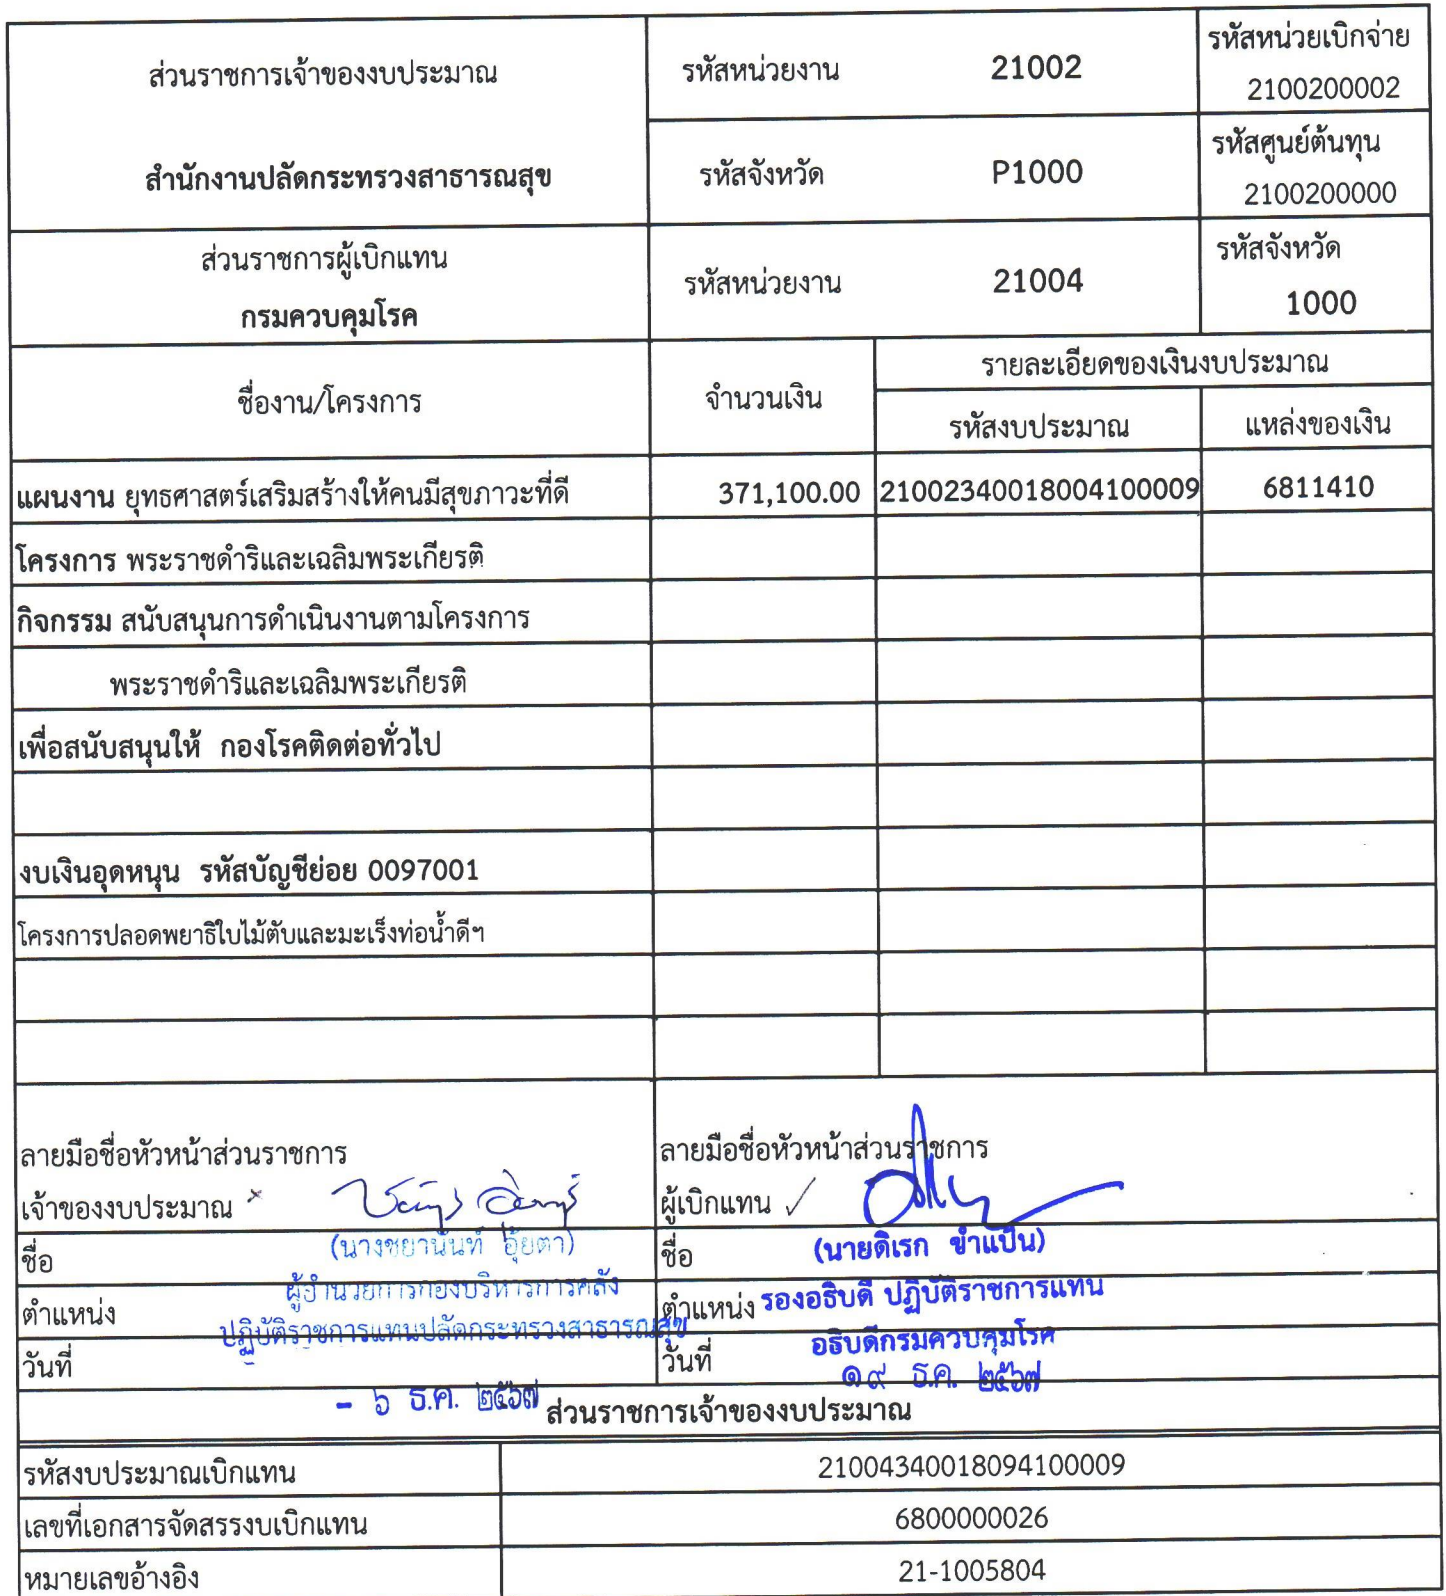 ส่วนราชการเจ้าของงบประมาณ
สำนักงานปลัดกระทรวงสาธารณสุข
รหัสหน่วยงาน 21002
รหัสหน่วยเบิกจ่าย
2100200002
รหัสจังหวัด P1000
รหัสศูนย์ต้นทุน
2100200000
ส่วนราชการผู้เบิกแทน
กรมควบคุมโรค
รหัสหน่วยงาน 21004
รหัสจังหวัด
1000
ชื่องาน/โครงการ
จำนวนเงิน
รายละเอียดของเงินงบประมาณ
รหัสงบประมาณ
แหล่งของเงิน
แผนงาน ยุทธศาสตร์เสริมสร้างให้คนมีสุขภาวะที่ดี 371,100.00 21002340018004100009 6811410
โครงการ พระราชดำริและเฉลิมพระเกียรติ
กิจกรรม สนับสนุนการดำเนินงานตามโครงการ
พระราชดำริและเฉลิมพระเกียรติ
เพื่อสนับสนุนให้ กองโรคติดต่อทั่วไป
งบเงินอุดหนุน รหัสบัญชีย่อย 0097001
โครงการปลอดพยาธิใบไม้ตับและมะเร็งท่อน้ำดีฯ
ลายมือชื่อหัวหน้าส่วนราชการ
เจ้าของงบประมาณ
ชื่อ (นางชยานันท์ อุ้ยตา)
ตำแหน่ง ผู้อำนวยการกองบริหารการคลัง
ปฏิบัติราชการแทนปลัดกระทรวงสาธารณสุข
วันที่ - ๖ ธ.ค. ๒๕๖๗
ลายมือชื่อหัวหน้าส่วนราชการ
ผู้เบิกแทน
ชื่อ (นายดิเรก ขำแป้น)
ตำแหน่ง รองอธิบดี ปฏิบัติราชการแทน
อธิบดีกรมควบคุมโรค
วันที่ ๑๙ ธ.ค. ๒๕๖๗
ส่วนราชการเจ้าของงบประมาณ
รหัสงบประมาณเบิกแทน 21004340018094100009
เลขที่เอกสารจัดสรรงบเบิกแทน 6800000026
หมายเลขอ้างอิง 21-1005804